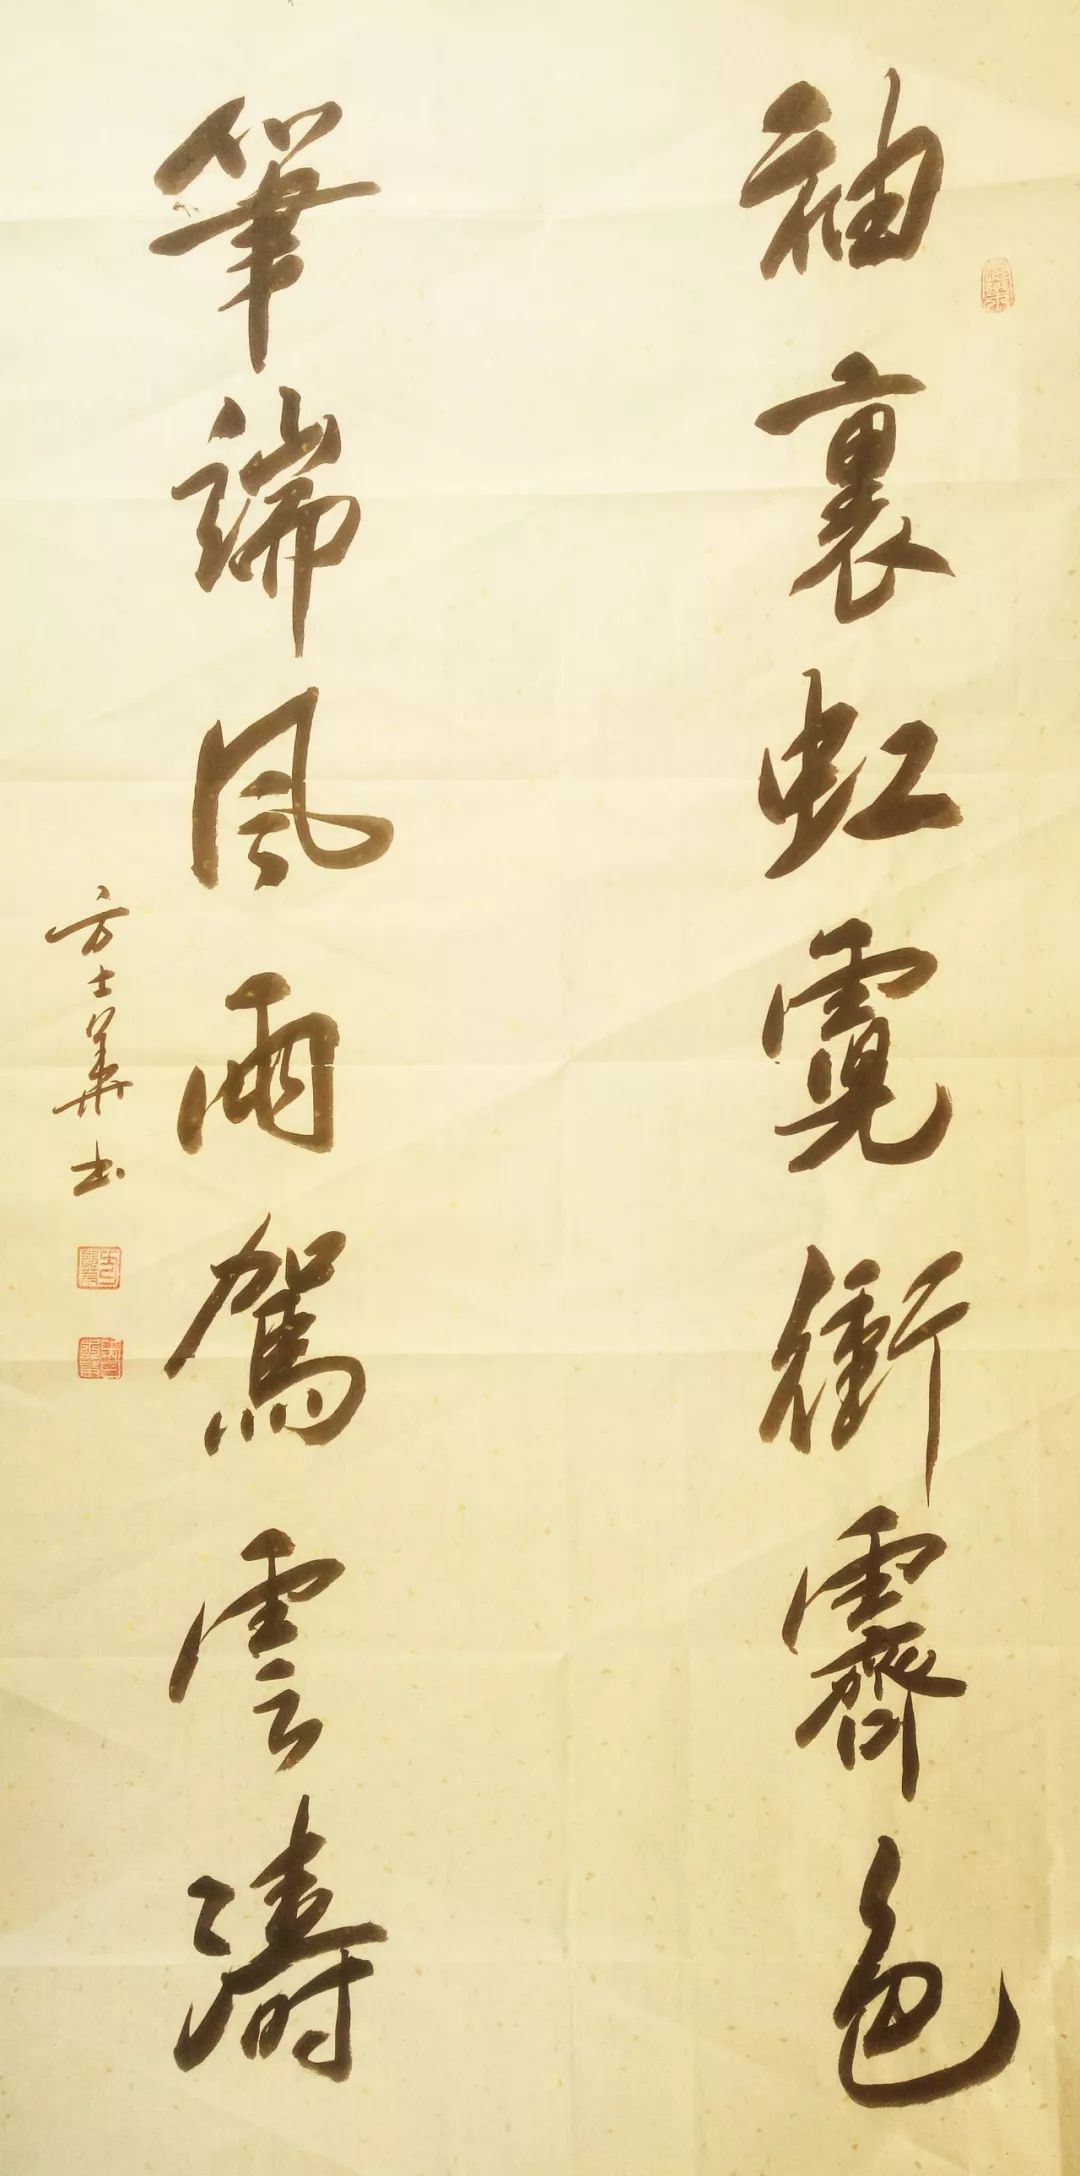 袖裏虹霓衝霽色
筆端風雨駕雲濤
方士華书